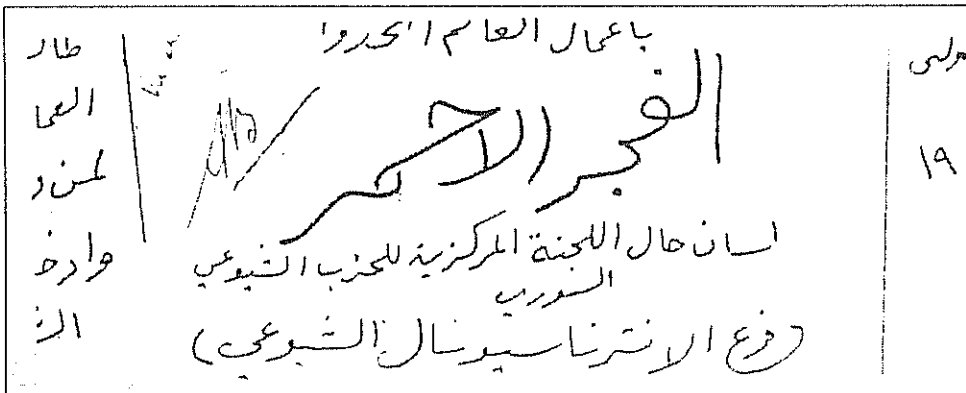 ياعمال العالم اتحدوا
الفجر الاحمر
لسان حال اللجنة المركزية للحزب الشيوعي
السوري
(فرع الانترناسيونال الشيوعي)
١٩
طار
العما
لمن و
الث